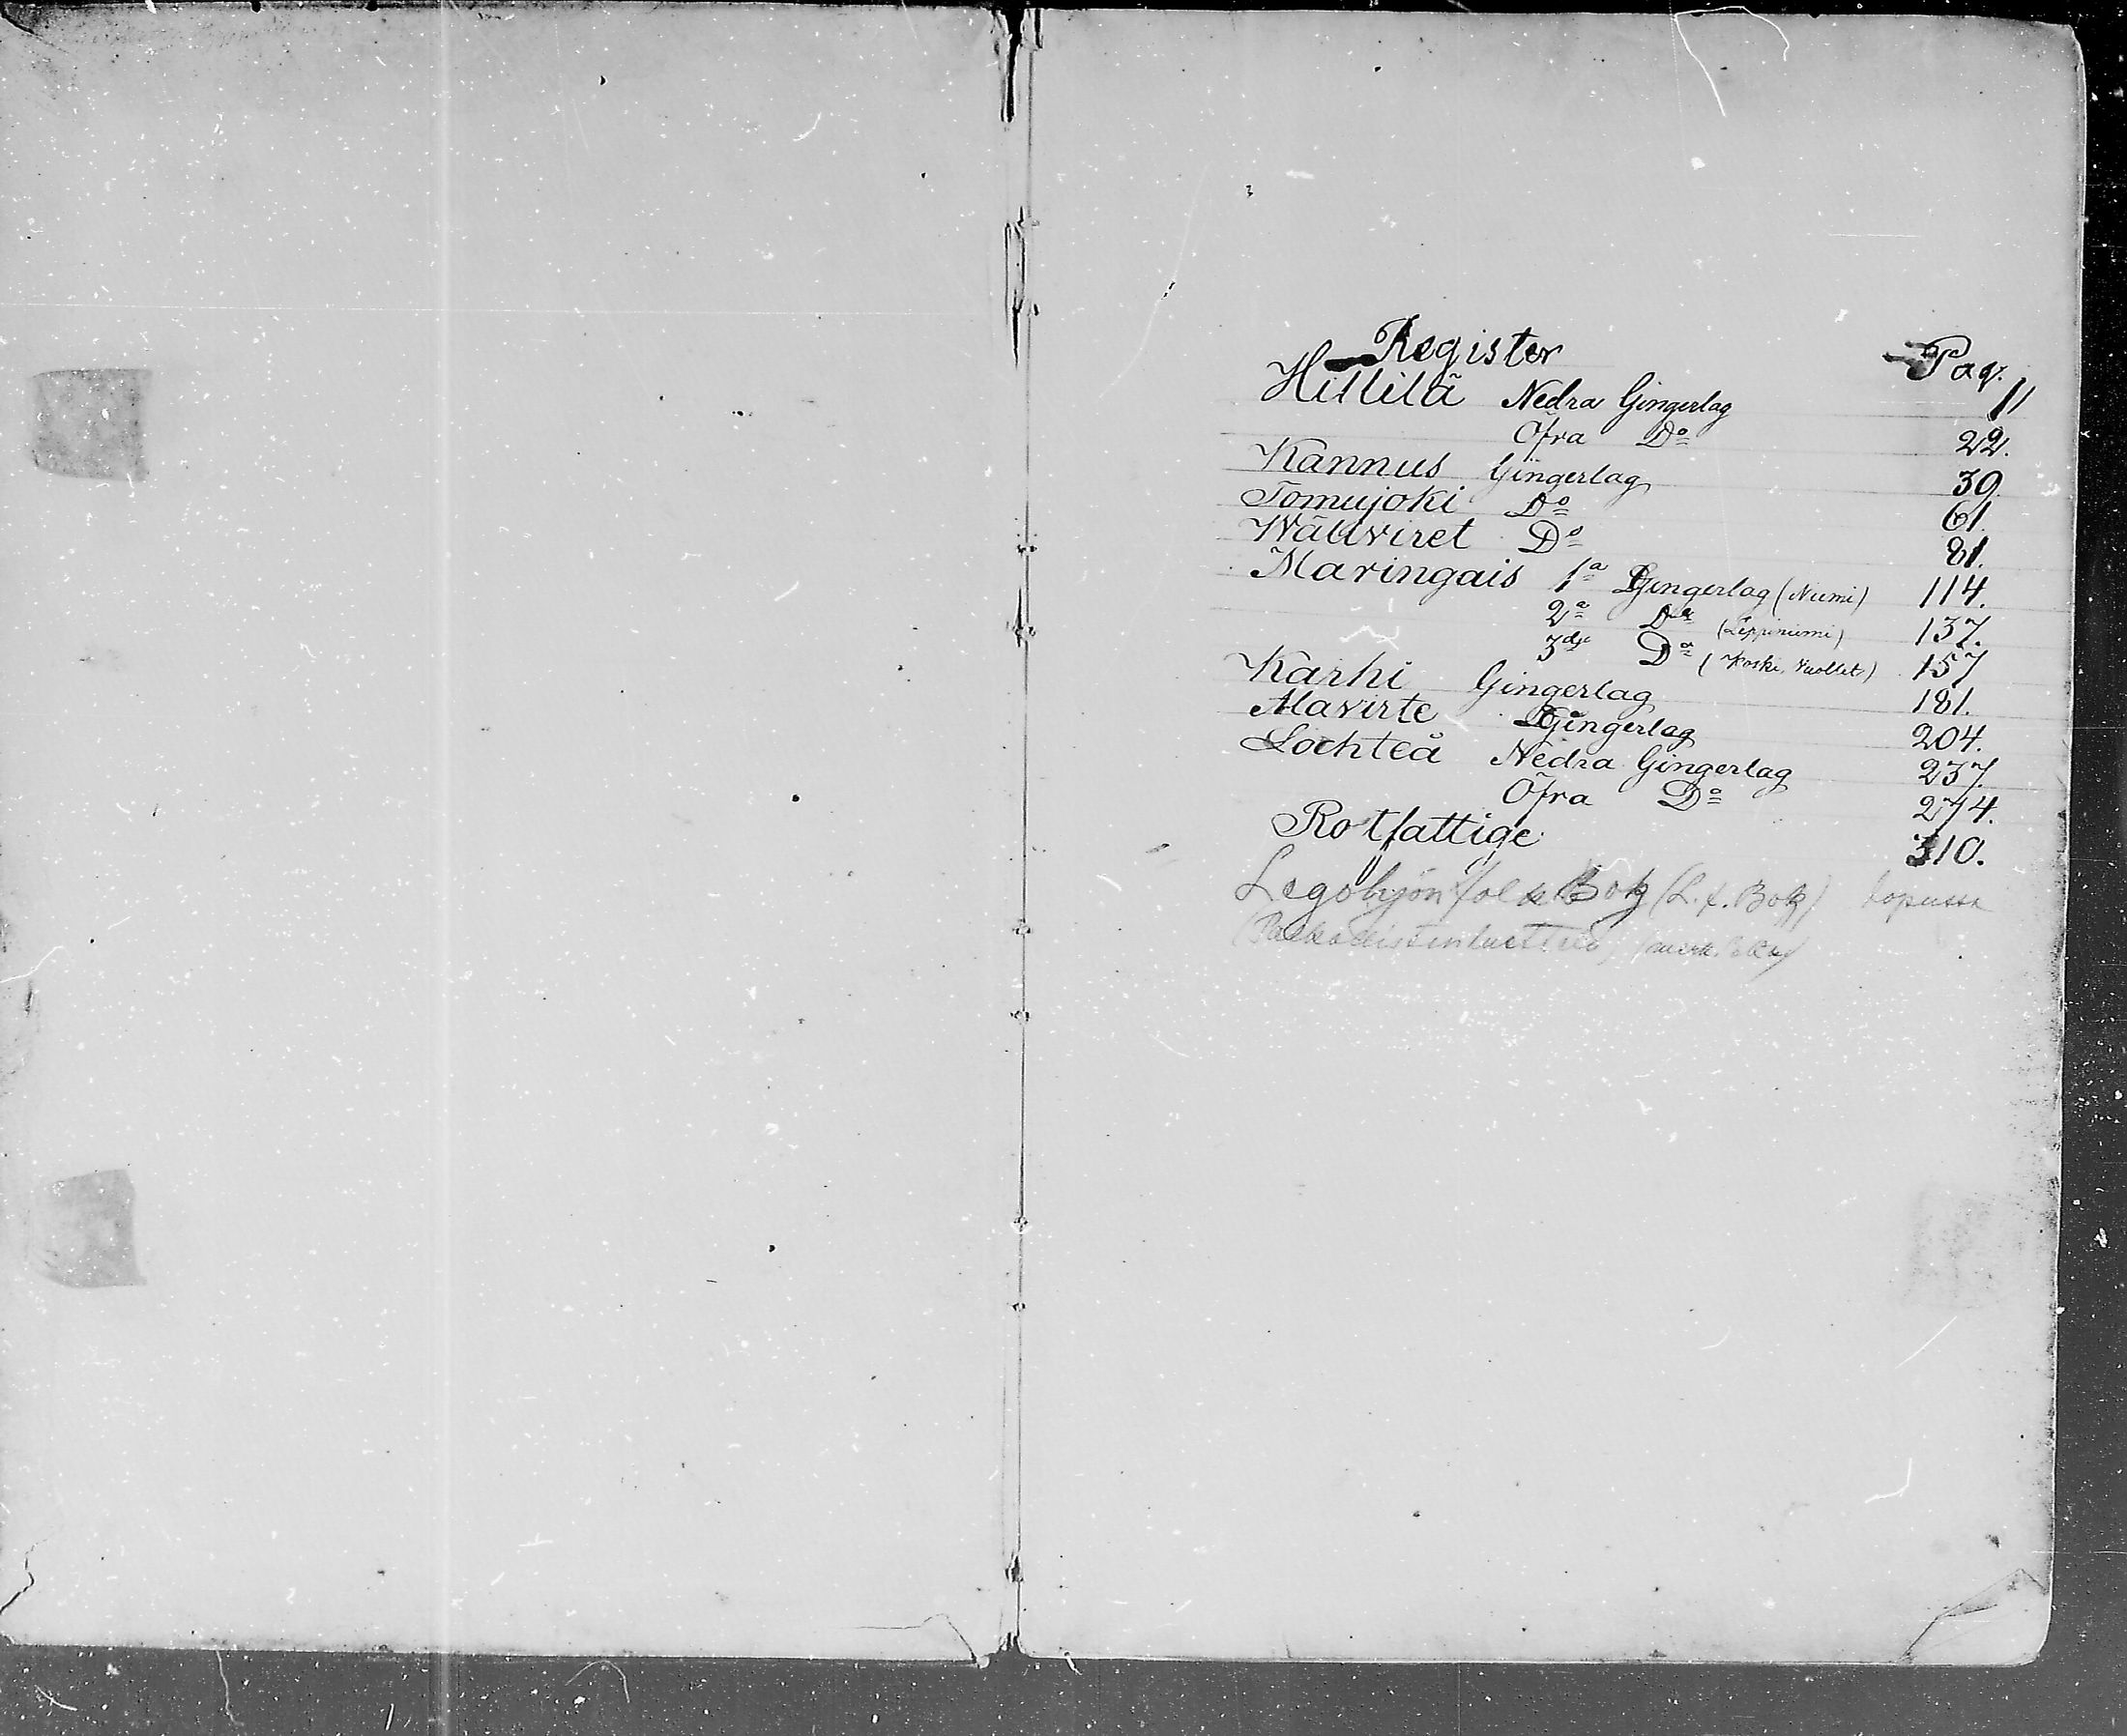 Register Pag.
Hillilä Nedra Gingerlag 11
Öfra Do 22.
Kannus Gingerlag 39.
Tomujoki Do 61.
Wäliviret Do 81.
Maringais 1a Gingerlag (Niemi) 114.
2a Do (Leppiniemi) 137.
3dje Do (Koski, Vuollet) 157
Karhi Gingerlag 181.
Alavirte Gingerlag 204.
Lochteå Nedra Gingerlag 237.
Öfra Do 274.
Rotfattige 310.
Legohjon folks Bok (L. f. Bok) lopussa